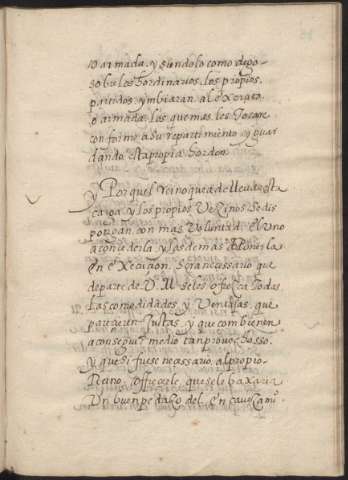 o armada, y siendolo como depo-
so bre los hordinarios, los propios
partidos ymbiaran al exercito
o armada los que mas les tocare
conforme a su repartimiento y guar
dando esta propia horden
y Porque el reino que a de llevar esta
carga y los propios Vezinos se dis
pongan con mas Voluntad el uno
a concederla y los demas a Ponerla
en execucion, sera necessario que
de parte de V. M. se les ofrezca todas
las comodidades, y Ventajas, que
parecieren justas, y que combienen
a conseguir medio tan provechosso.
y que si fuese necessario al propio
Reino, offrecerle que se le baxaria
Un buen pedazo del encavezamo